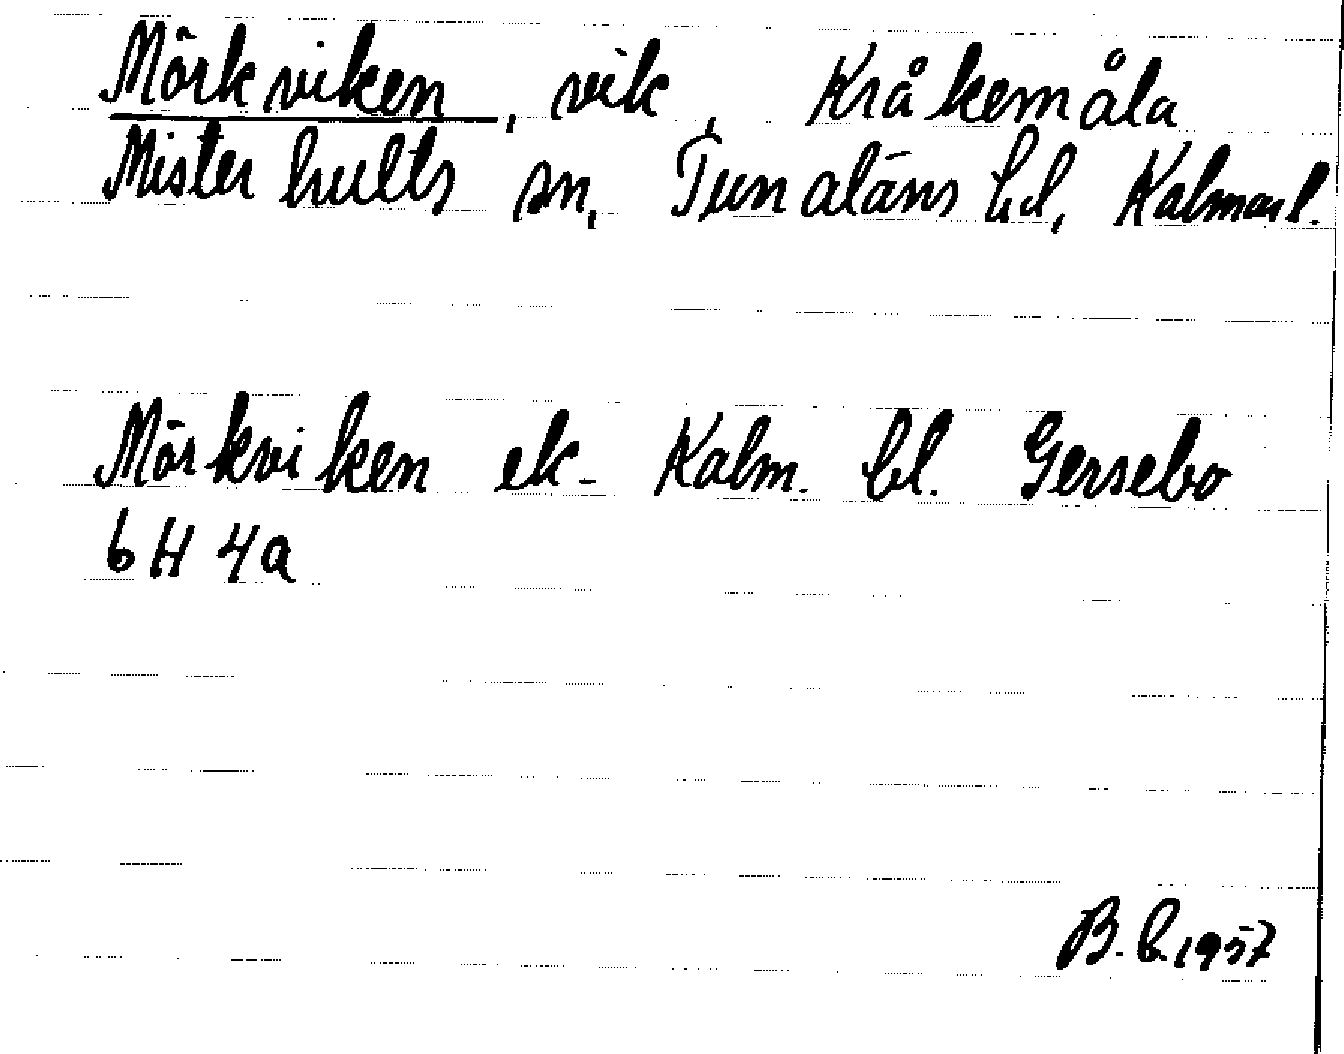 Mörkviken, vik, Kråkemåla
Misterhults sn, Tunaläns hd, Kalmar l.
Mörkviken ek. Kalm. bl. Gersebo
6H 4a
B. 1957